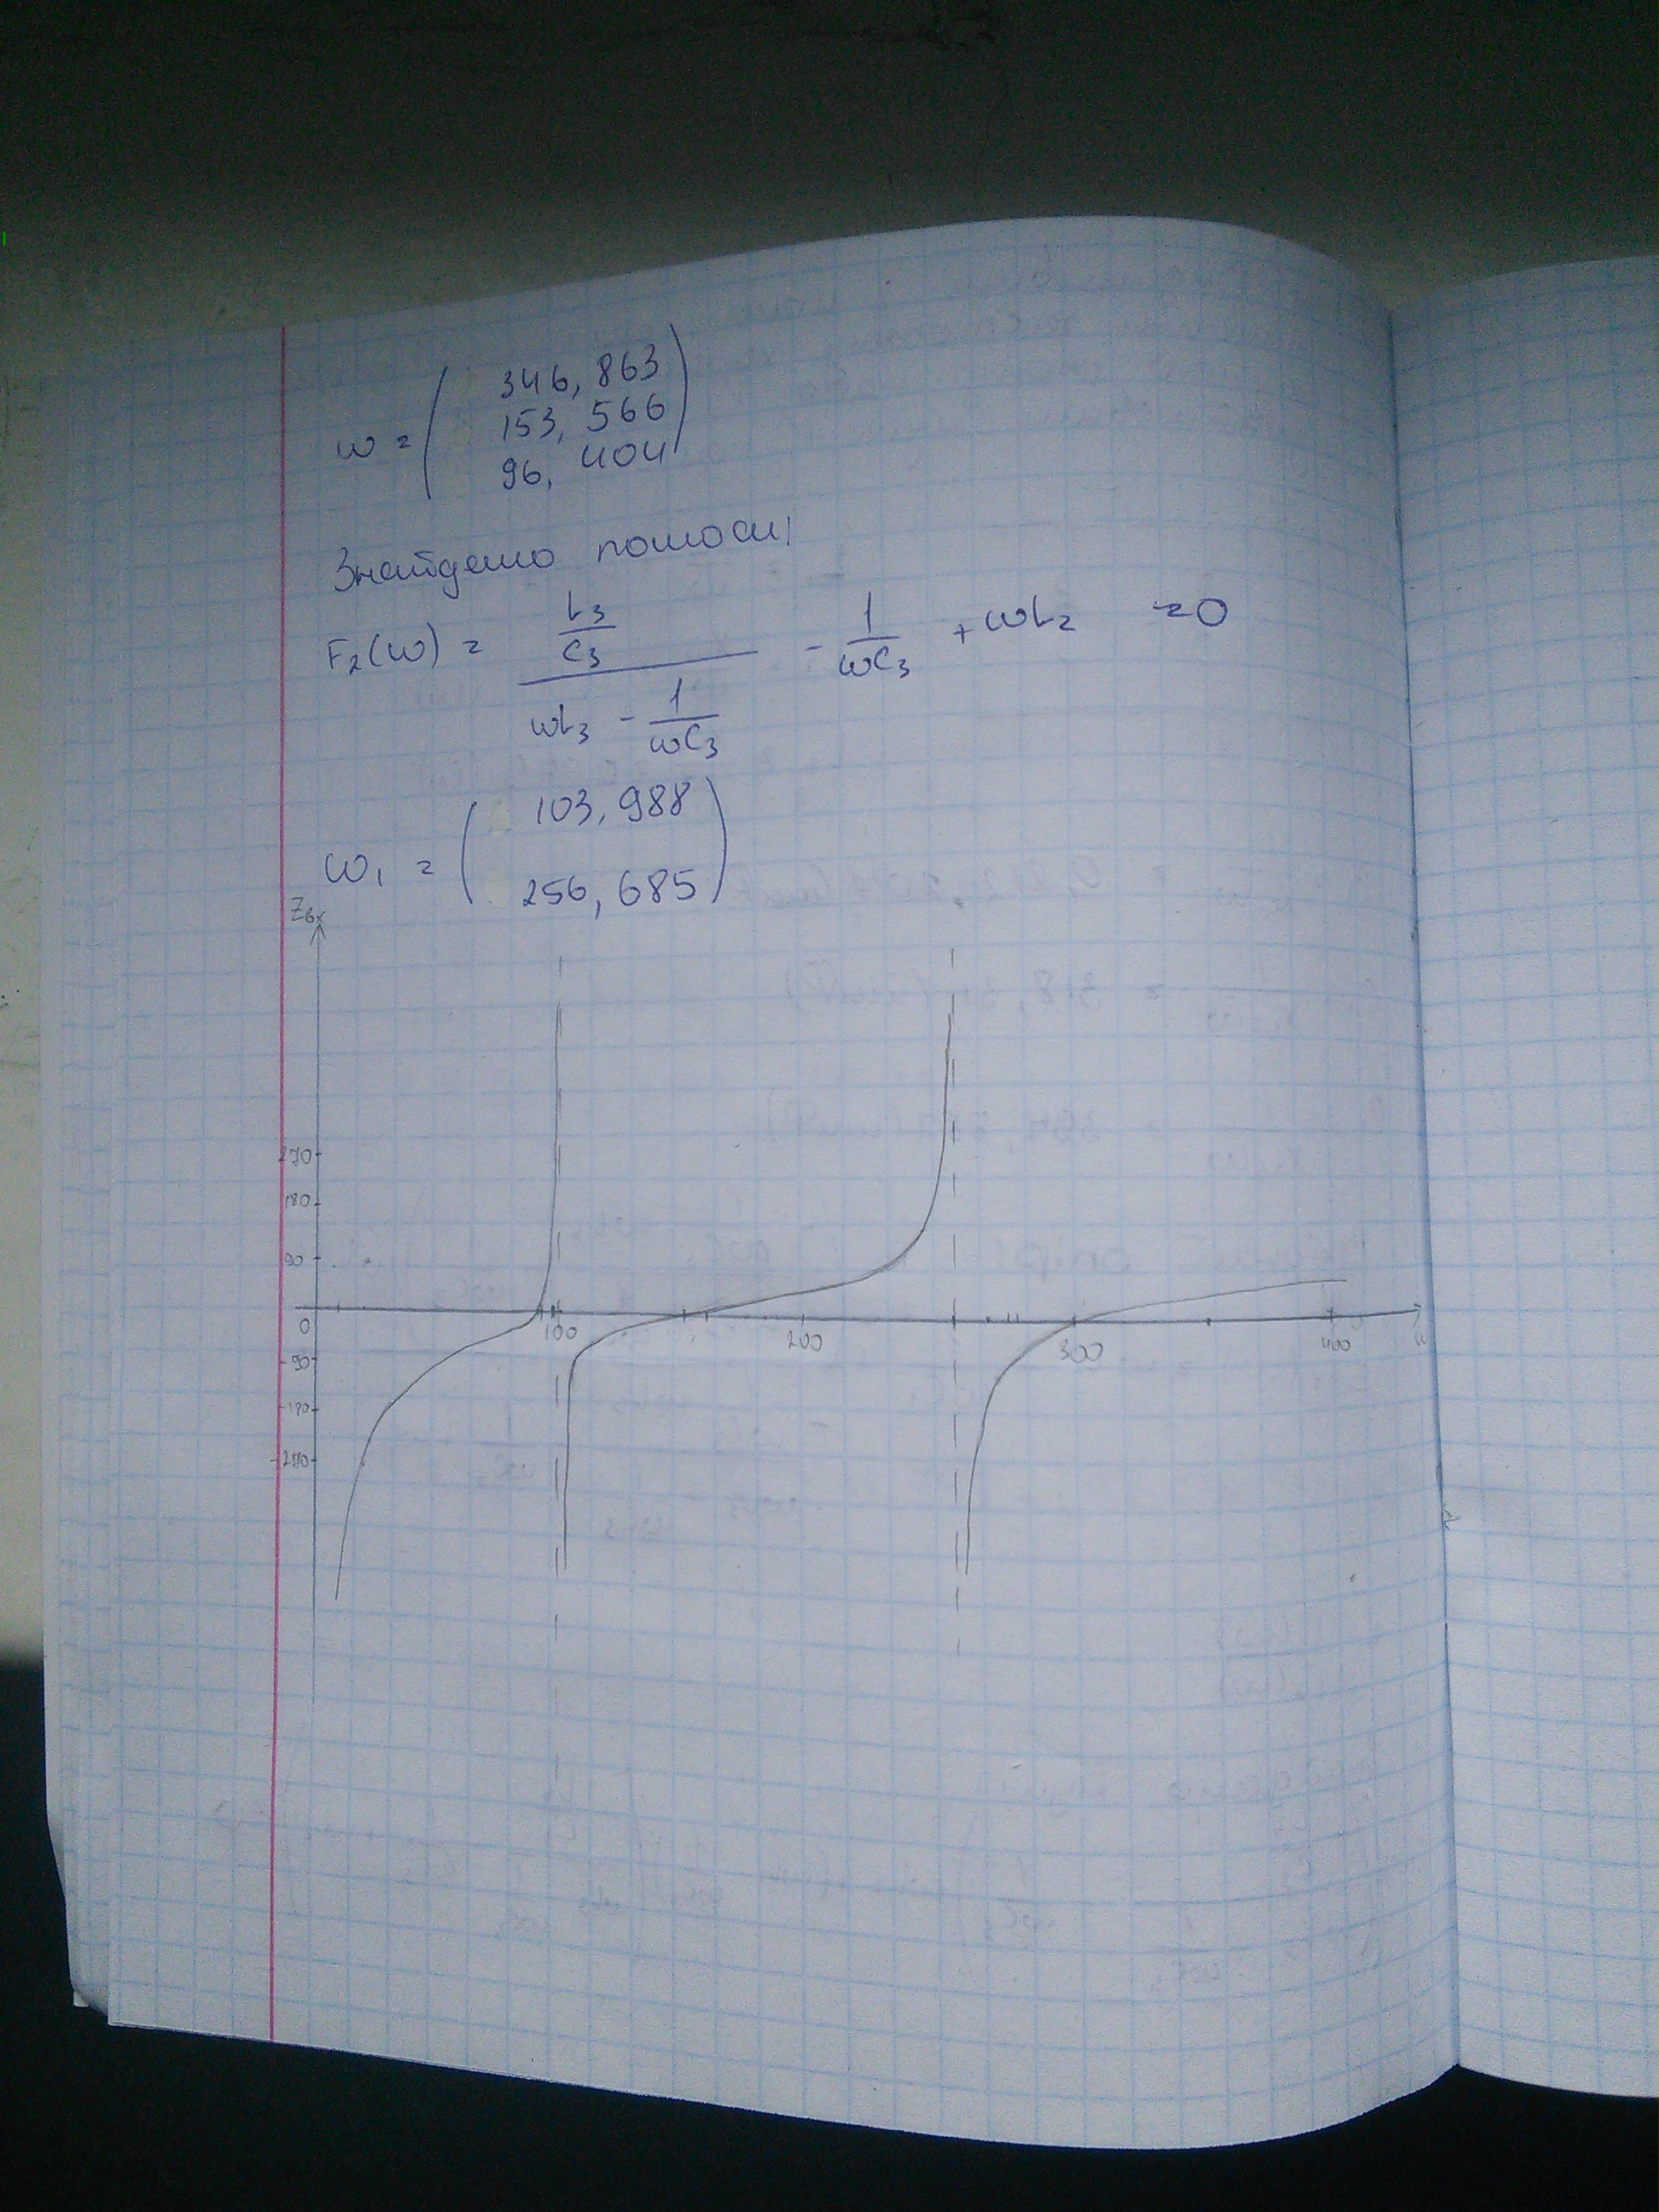 ω = ( 346, 863
153, 566
96, 404 )
Знайдемо полюси
F₂(ω) = (L₃/C₃)/(ωL₃ - 1/(ωC₃)) - 1/(ωC₃) + ωL₂ = 0
ω₁ = ( 103, 988
256, 685 )
Zвх
270
180
90
0 100 200 300 400
-90
-180